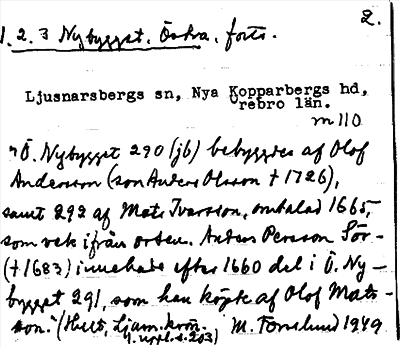 2.
1. 2. 3 Nybygget. Östra, forts.
Ljusnarsbergs sn, Nya Kopparbergs hd,
Örebro län.
m 110
"Ö. Nybygget 290 (jb) bebyggdes af Olof
Andersson (son Anders Olsson † 1726),
samt 292 af Mats Ivarsson, omtalad 1665,
som vek ifrån orten. Anders Persson Sör-
(† 1683) innehade efter 1660 del i Ö. Ny-
bygget 291, som han köpte af Olof Mats-
son." (Hult, Ljusn. krön.
4. uppl. s. 203) M. Forslund 1949